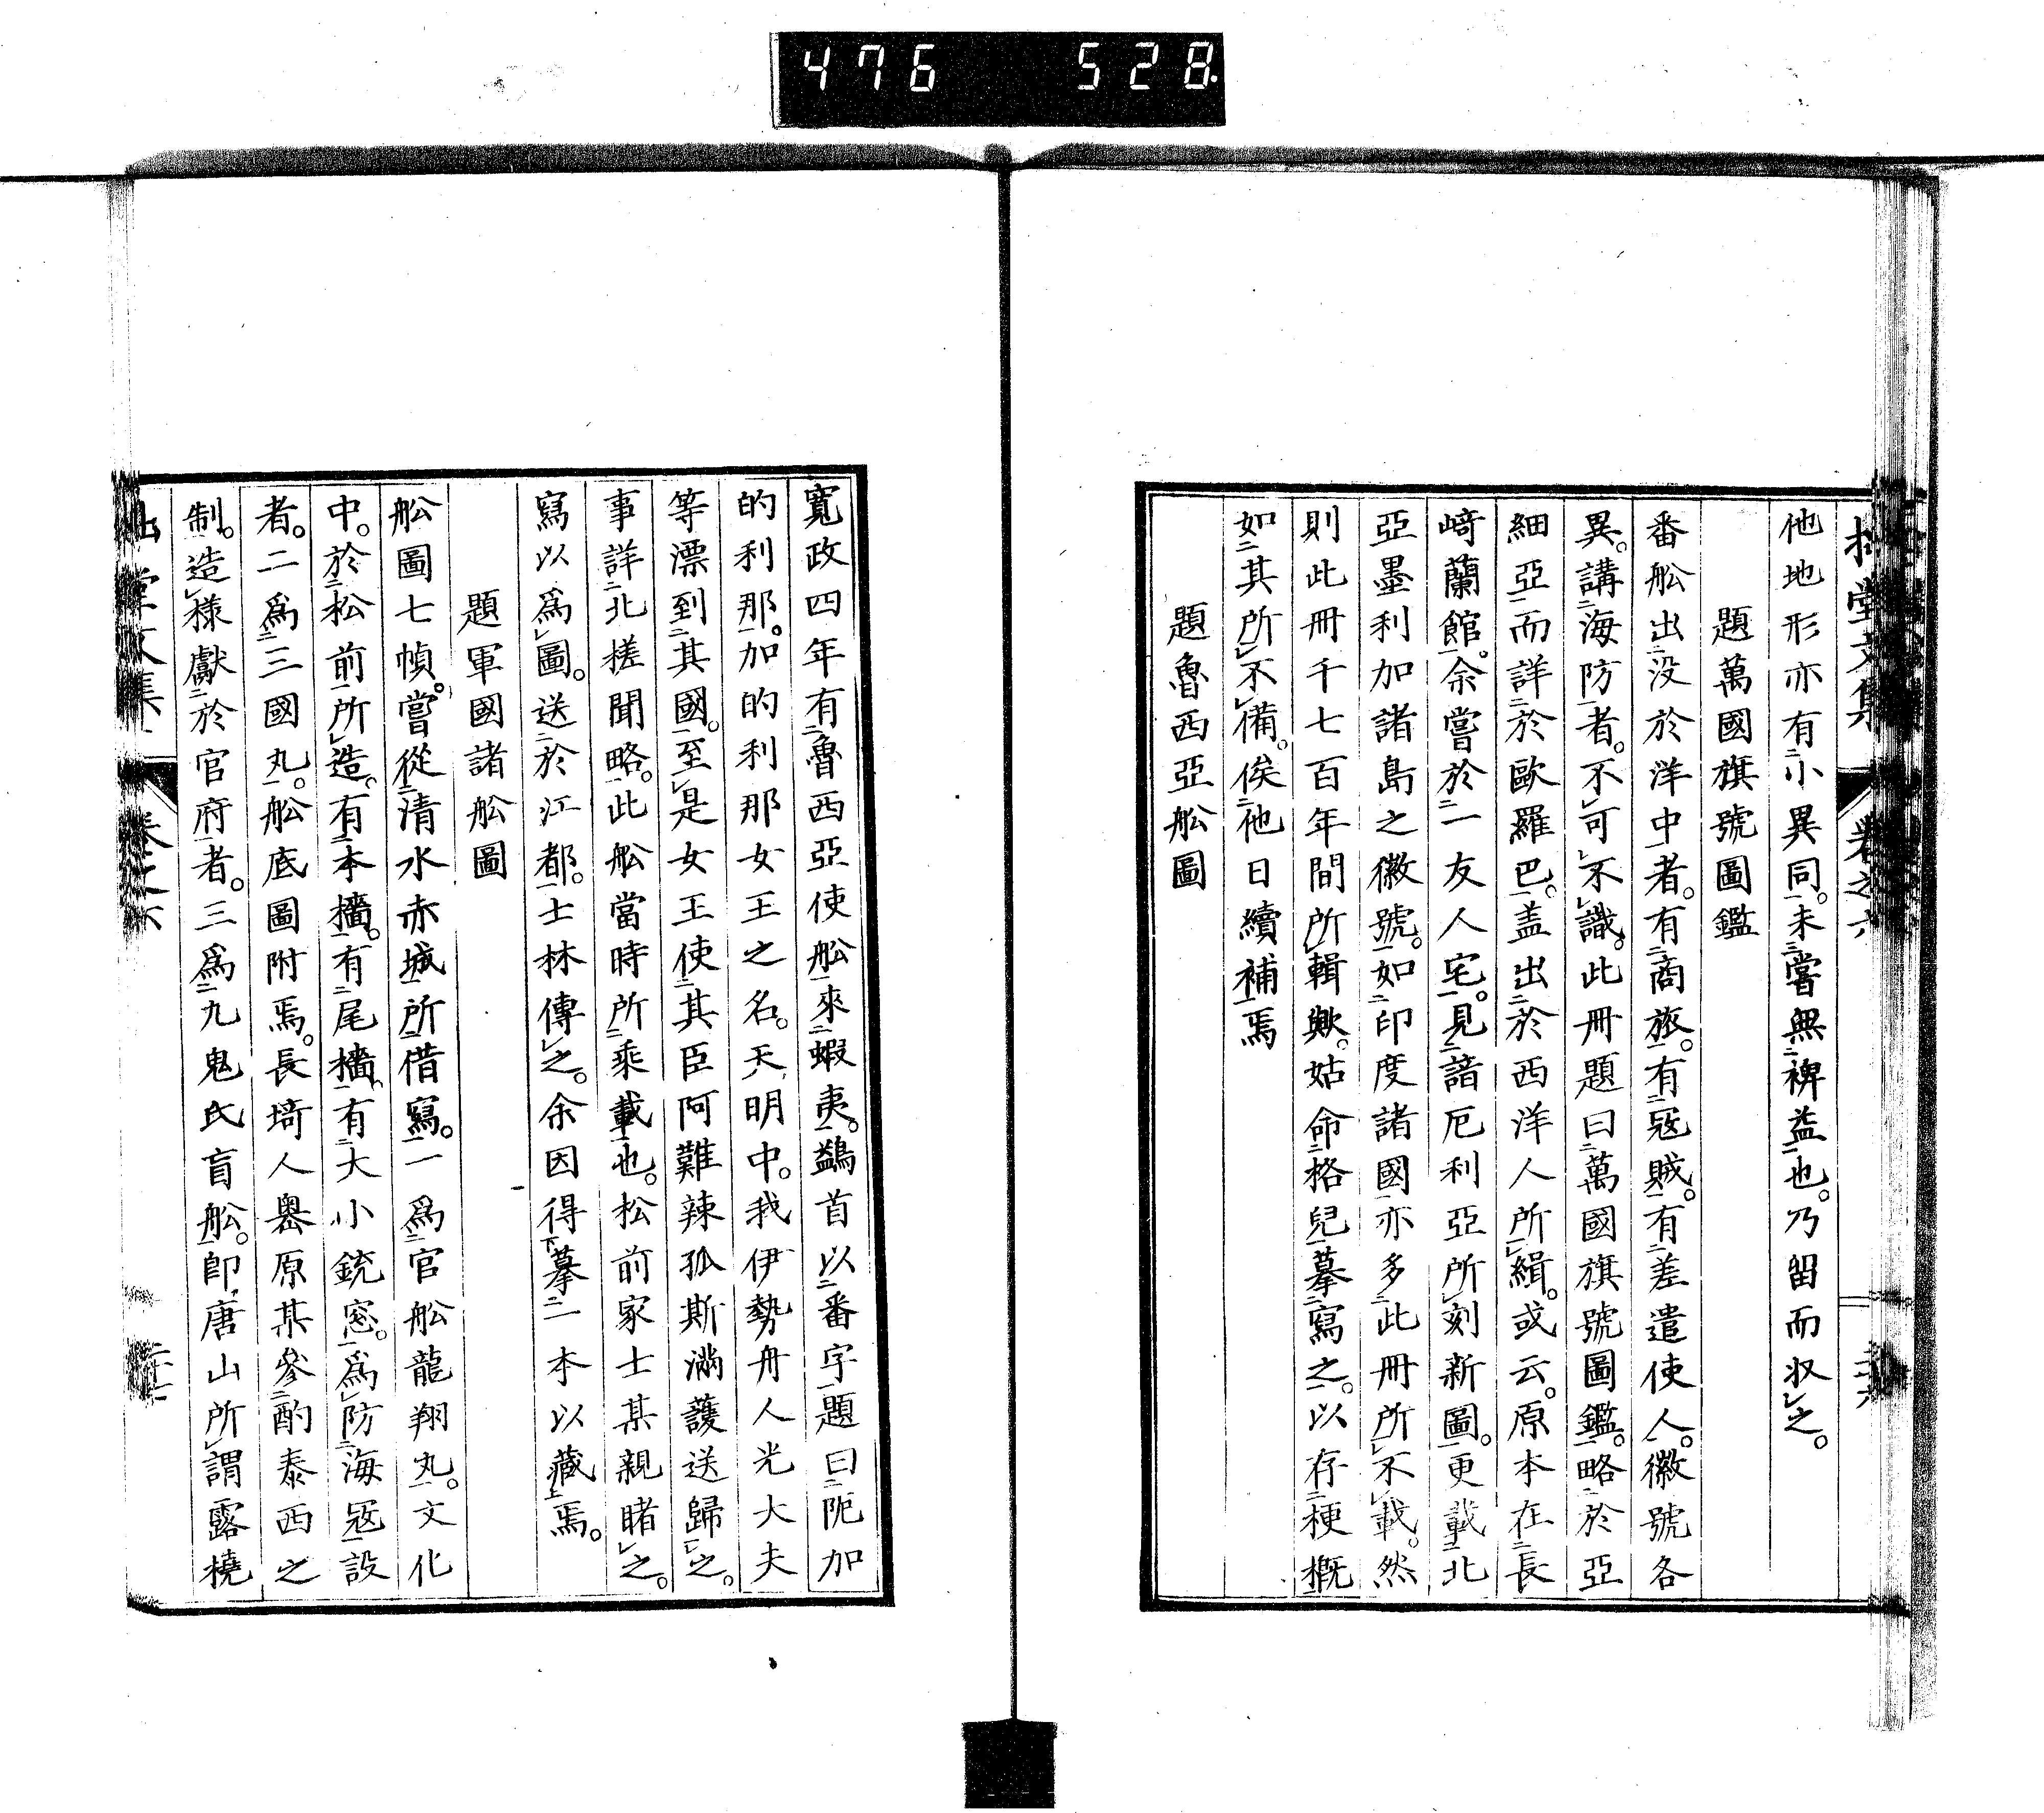 476 528
他地形亦有小異同。未嘗無裨益也。乃留而収之。
題萬國旗號圖鑑
番舩出没於洋中者。有商旅。有冦賊。有差遣使人。徽號各
異。講海防者。不可不識。此冊題曰萬國旗號圖鑑。略於亞
細亞而詳於歐羅巴。盖出於西洋人所緝。或云。原本在長
﨑蘭館。余嘗於一友人宅。見諳厄利亞所刻新圖。更載北
亞墨利加諸島之徽號。如印度諸國亦多此冊所不載。然
則此冊千七百年間所輯歟。姑命格兒摹寫之。以存梗概
如其所不備。俟他日續補焉
題魯西亞舩圖
寛政四年有魯西亞使舩來蝦夷。鷁首以番字題曰阨加
的利那。加的利那女王之名。天明中。我伊勢舟人光大夫
等漂到其國。至是女王使其臣阿難辣孤斯滿護送歸之。
事詳北槎聞略。此舩當時所乘載也。松前家士某親睹之。
寫以為圖。送於江都。士林傳之。余因得摹一本以藏焉。
題軍國諸舩圖
舩圖七幀。嘗從清水赤城所借寫。一爲官舩龍翔丸。文化
中。於松前所造。有本檣。有尾檣。有大小銃窓。爲防海冦設
者。二爲三國丸。舩底圖附焉。長埼人奧原某參酌泰西之
制。造樣獻於官府者。三爲九鬼氏盲舩。卽唐山所謂露橈